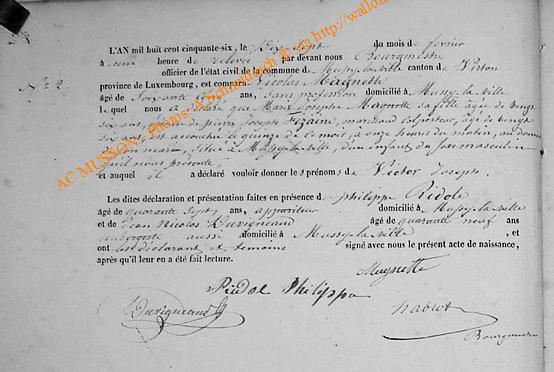 L'AN mil huit cent cinquante-six, le Dix sept du mois de février
à une heure de relevée par devant nous Bourgmestre
officier de l'état civil de la commune de Mussy-la-ville canton de Virton
N° 2.
province de Luxembourg, est comparu Nicolas
âgé de Soixante ans, sans profession domicilié à Mussy-la-ville
lequel nous a déclaré que Marie Josephe Magnette sa fille âgée de vingt
six ans, épouse de pierre Joseph Fizaine, marchand colporteur, âgé de vingt
six ans, est accouchée le quinze de ce mois, à onze heures du matin, au domicile
de son mari, situé à Mussy-la-ville, d'un enfant du sexe masculin
qu'il nous présente,
et auquel il a déclaré vouloir donner les prénoms de Victor Joseph.
Les dites déclaration et présentation faites en présence de philippe Ridole
âgé de quarante sept ans, appariteur domicilié à Mussy-la-ville
et de Jean Nicolas Duvigneaud âgé de quarante neuf ans
aussi domicilié à Mussy-la-ville, et
ont les déclarant et témoins signé avec nous le présent acte de naissance,
après qu'il leur en a été fait lecture.
Magnette
Riedol Philippe
Duvigneaud
Bourgmestre
AC MUSSON, Photos: A.Schmidt http://wallo